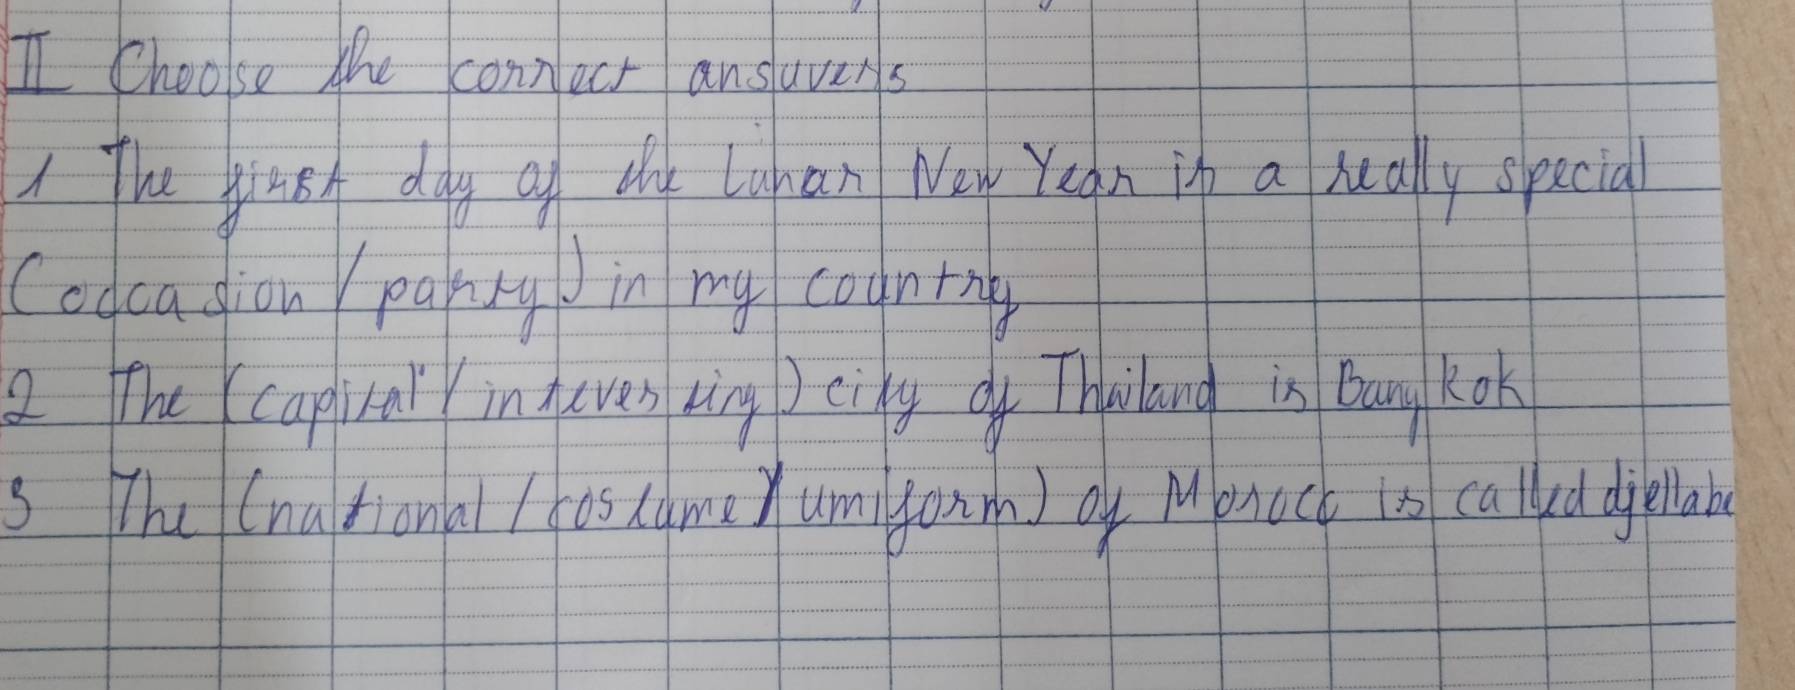 II Choose the correct ansuvers
1 The first day of the Lunar New Year is a really special
(occasion / party) in my country
2 The (capital / interesting) city of Thailand is Bangkok
3 The (national / costume / umiform) of Morocc is called djellabe